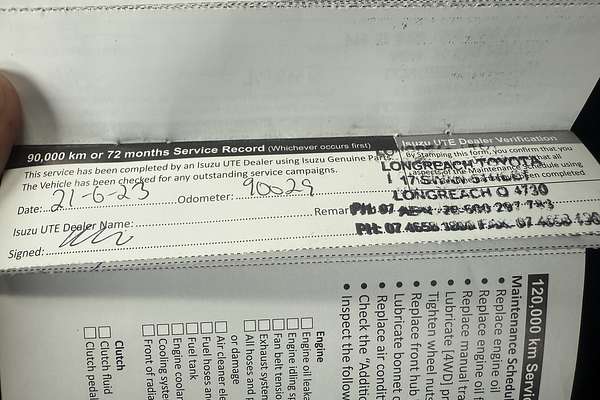 90,000 km or 72 months Service Record (Whichever occurs first)
This service has been completed by an Isuzu UTE Dealer using Isuzu Genuine Parts
The Vehicle has been checked for any outstanding service campaigns.
Date: 21-6-23 Odometer: 90029
Isuzu UTE Dealer Name: Remar
Signed:
Isuzu UTE Dealer Verification
By Stamping this form, you confirm that
LONGREACH TOYOTA
LONGREACH Q 4730
120,000 km Servic
Maintenance Schedul
• Replace engine oil
• Replace engine oil f
• Replace manual tra
• Lubricate [4WD] pr
• Tighten wheel nuts
• Replace front hub
• Lubricate bonnet c
• Replace air condit
• Check the "Additi
• Inspect the follow
Engine
Engine oil leaka
Engine idling s
Fan belt tensio
Exhaust system
All hoses and
or damage
Air cleaner ele
Fuel hoses and
Fuel tank
Engine coolan
Cooling syste
Front of radia
Clutch
Clutch fluid
Clutch pedal